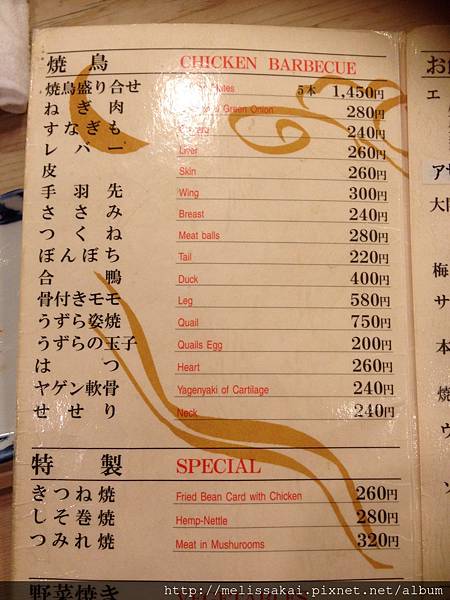 焼鳥 CHICKEN BARBECUE
焼鳥盛り合せ 5本 1,450円
ねぎ肉 Green Onion 280円
すなぎも 240円
レバー Liver 260円
皮 Skin 260円
手羽先 Wing 300円
ささみ Breast 240円
つくね Meat balls 280円
ぼんぼち Tail 220円
合鴨 Duck 400円
骨付きモモ Leg 580円
うずら姿焼 Quail 750円
うずらの玉子 Quails Egg 200円
はつ Heart 260円
ヤゲン軟骨 Yagenyaki of Cartilage 240円
せせり Neck 240円
特製 SPECIAL
きつね焼 Fried Bean Card with Chicken 260円
しそ巻焼 Hemp-Nettle 280円
つみれ焼 Meat in Mushurooms 320円
野菜焼き
お
エ
ア
大
梅
サ
本
焼
ウ
http://melissakai.pixnet.net/album